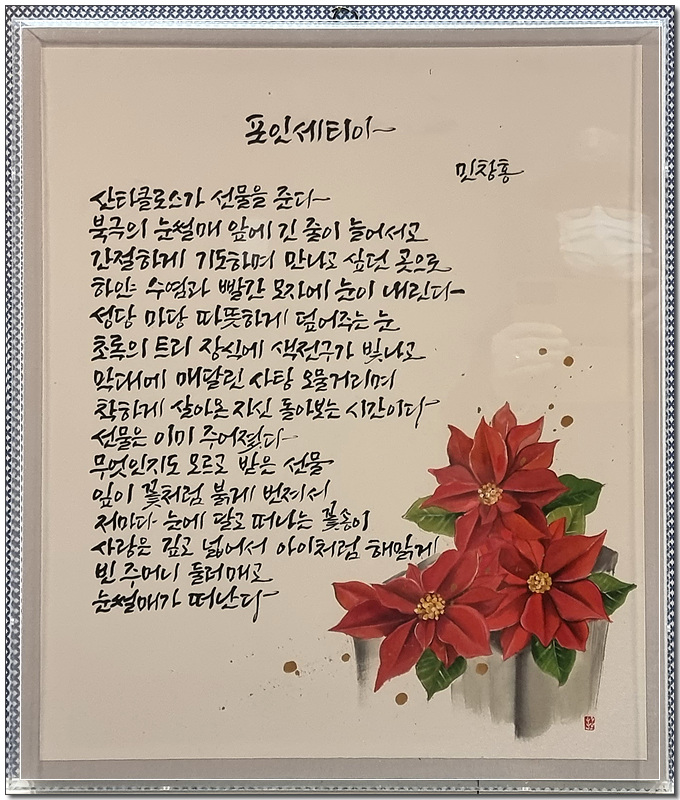 포인세티아
민창홍
산타클로스가 선물을 준다
북극의 눈썰매 앞에 긴 줄이 늘어서고
간절하게 기도하며 만나고 싶던 곳으로
하얀 수염과 빨간 모자에 눈이 내린다
성당 마당 따뜻하게 덮어주는 눈
초록의 트리 장식에 색전구가 빛나고
막대에 매달린 사탕 오물거리며
착하게 살아온 자신 돌아보는 시간이다
선물은 이미 주어졌다
무엇인지도 모르고 받은 선물
잎이 꽃처럼 붉게 번져서
저마다 눈에 달고 떠나는 꽃송이
사랑은 깊고 넓어서 아이처럼 해맑게
빈 주머니 둘러매고
눈썰매가 떠난다